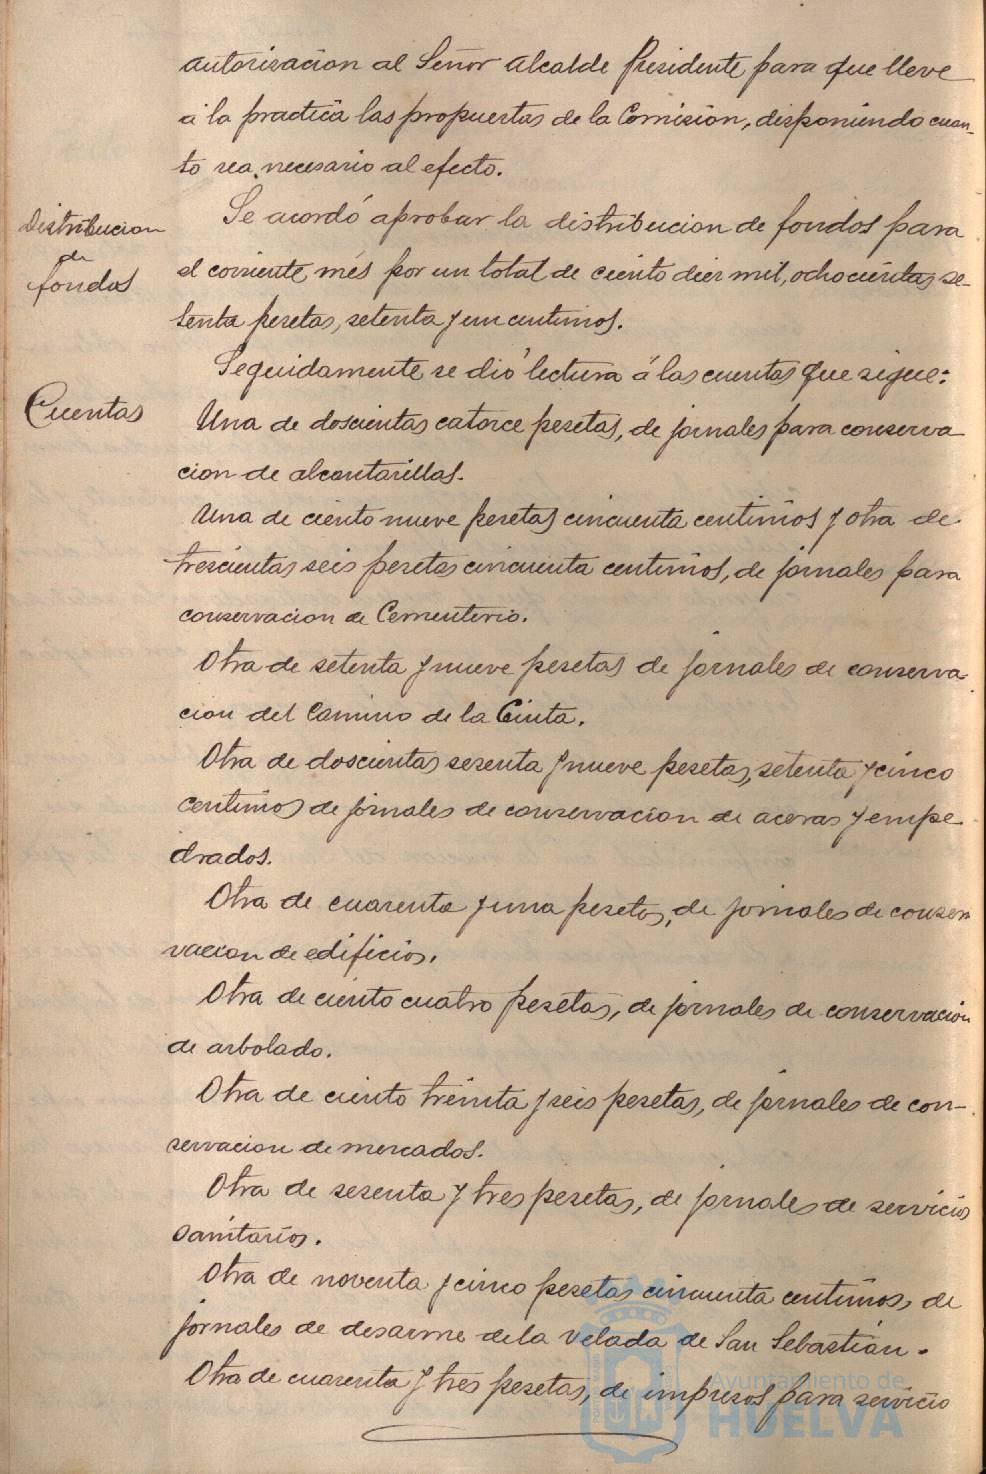 autorizacion al Señor Alcalde Presidente para que lleve
á la practica las propuestas de la Comision, disponiendo cuan-
to sea necesario al efecto.
Distribucion
de
fondos
Se acordó aprobar la distribucion de fondos para
el corriente més por un total de ciento diez mil, ochocientas se-
tenta pesetas, setenta y un centimos.
Seguidamente se dió lectura á las cuentas que sigue:
Cuentas
Una de doscientas catorce pesetas, de jornales para conserva
cion de alcantarillas.
Una de ciento nueve pesetas cincuenta centimos y otra de
trescientas seis pesetas cincuenta centimos, de jornales para
conservacion de Cementerio.
Otra de setenta y nueve pesetas de jornales de conserva-
cion del Camino de la Cinta.
Otra de doscientas sesenta y nueve pesetas, setenta y cinco
centimos de jornales de conservacion de aceras y empe
drados.
Otra de cuarenta y una pesetas, de jornales de conser
vacion de edificios.
Otra de ciento cuatro pesetas, de jornales de conservación
de arbolado.
Otra de ciento treinta y seis pesetas, de jornales de con-
servacion de mercados.
Otra de sesenta y tres pesetas, de jornales de servicios
sanitarios.
Otra de noventa y cinco pesetas cincuenta centimos, de
jornales de desarme de la velada de San Sebastián.
Otra de cuarenta y tres pesetas, de impresos para servicio
Ayuntamiento de
HUELVA